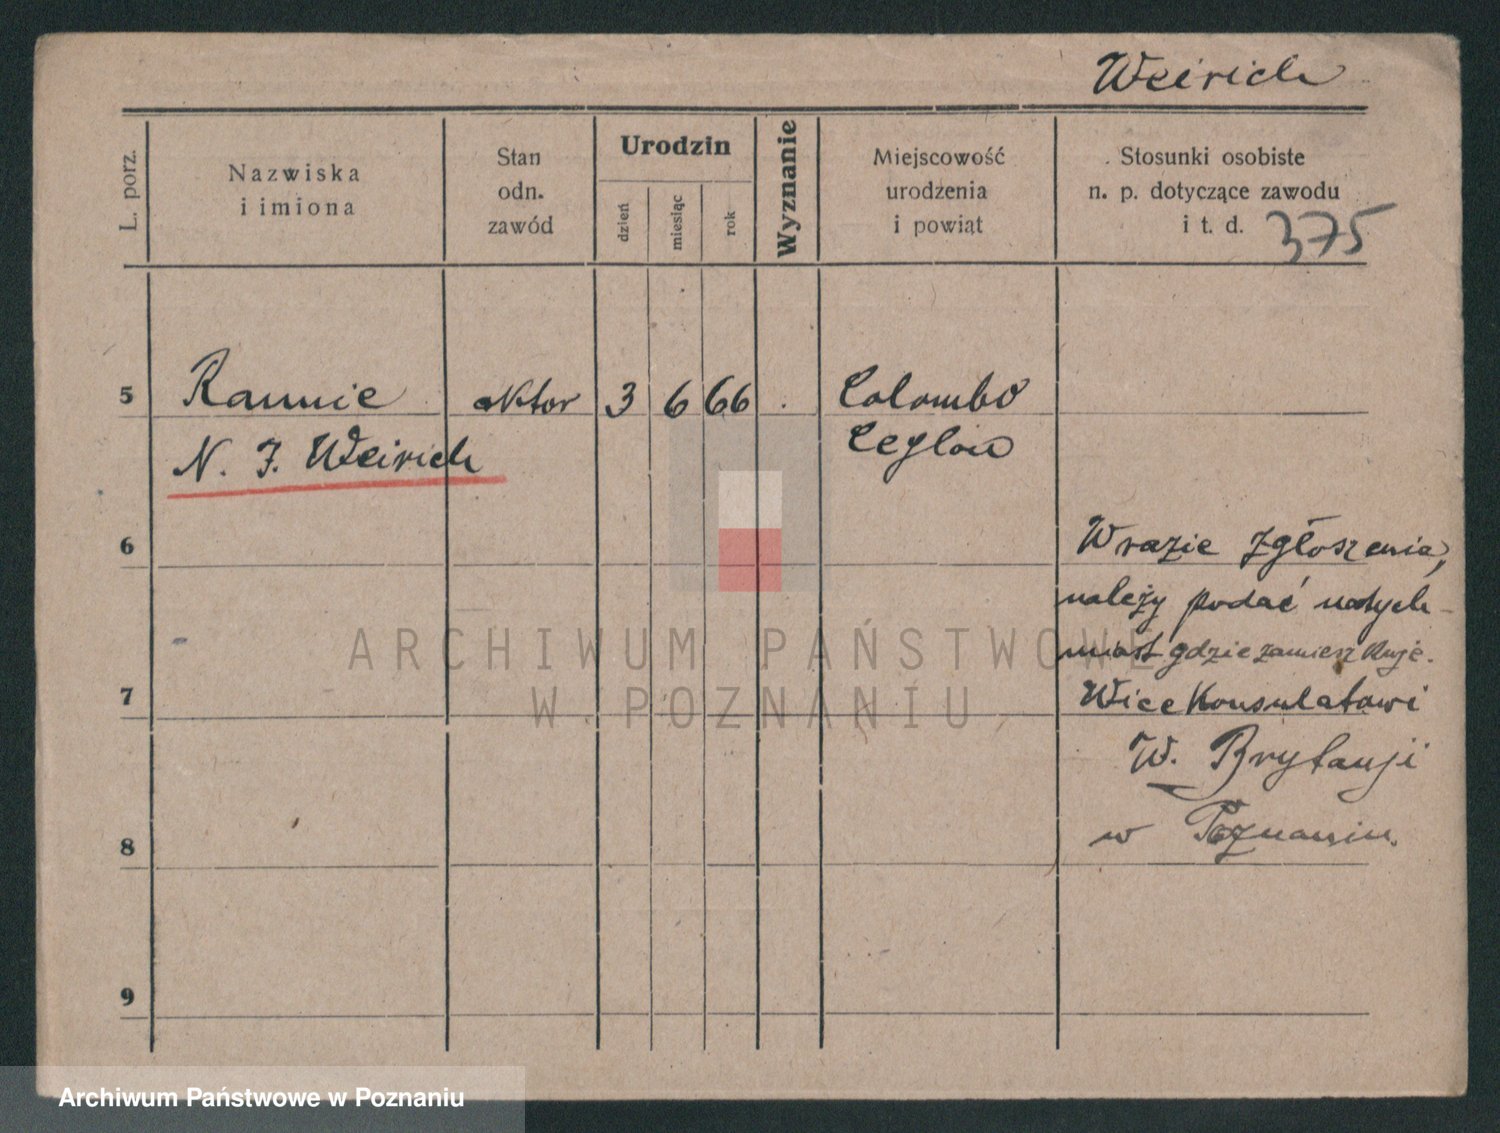 Weirich
L. porz.
Nazwiska
i imiona
Stan
odn.
zawód
Urodzin
dzień
miesiąc
rok
Wyznanie
Miejscowość
urodzenia
i powiat
Stosunki osobiste
n. p. dotyczące zawodu
i t. d.
375
5 Rannie aktor 3 6 66 . Colombo
N. J. Weirich Ceylon
6
W razie zgłoszenia,
należy podać natych-
miast gdzie zamieszkuje.
7
Wice Konsulatowi
W. Brytanji
w Poznaniu.
8
9
ARCHIWUM PAŃSTWOWE
W POZNANIU
Archiwum Państwowe w Poznaniu